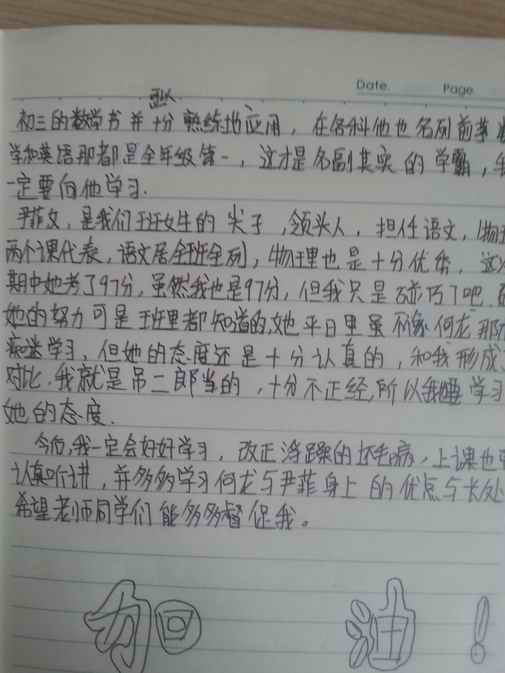 Date. Page
可以
初三的数学书并十分熟练地应用，在各科他也名列前茅
学和英语那都是全年级第一，这才是名副其实的学霸，我
一定要向他学习.
尹菲文，是我们班女生的尖子，领头人，担任语文，物理
两个课代表，语文居全班全列，物理也是十分优秀，这次
期中她考了97分，虽然我也是97分，但我只是碰巧了吧.
她的努力可是班里都知道的，她平日里虽不像何龙那
痴迷学习，但她的态度还是十分认真的，和我形成
对比.我就是吊二郎当的，十分不正经，所以我要学习
她的态度.
今后，我一定会好好学习，改正浮躁的坏毛病，上课也
认真听讲，并多多学习何龙与尹菲身上的优点与长处
希望老师同学们能多多督促我。
加油！